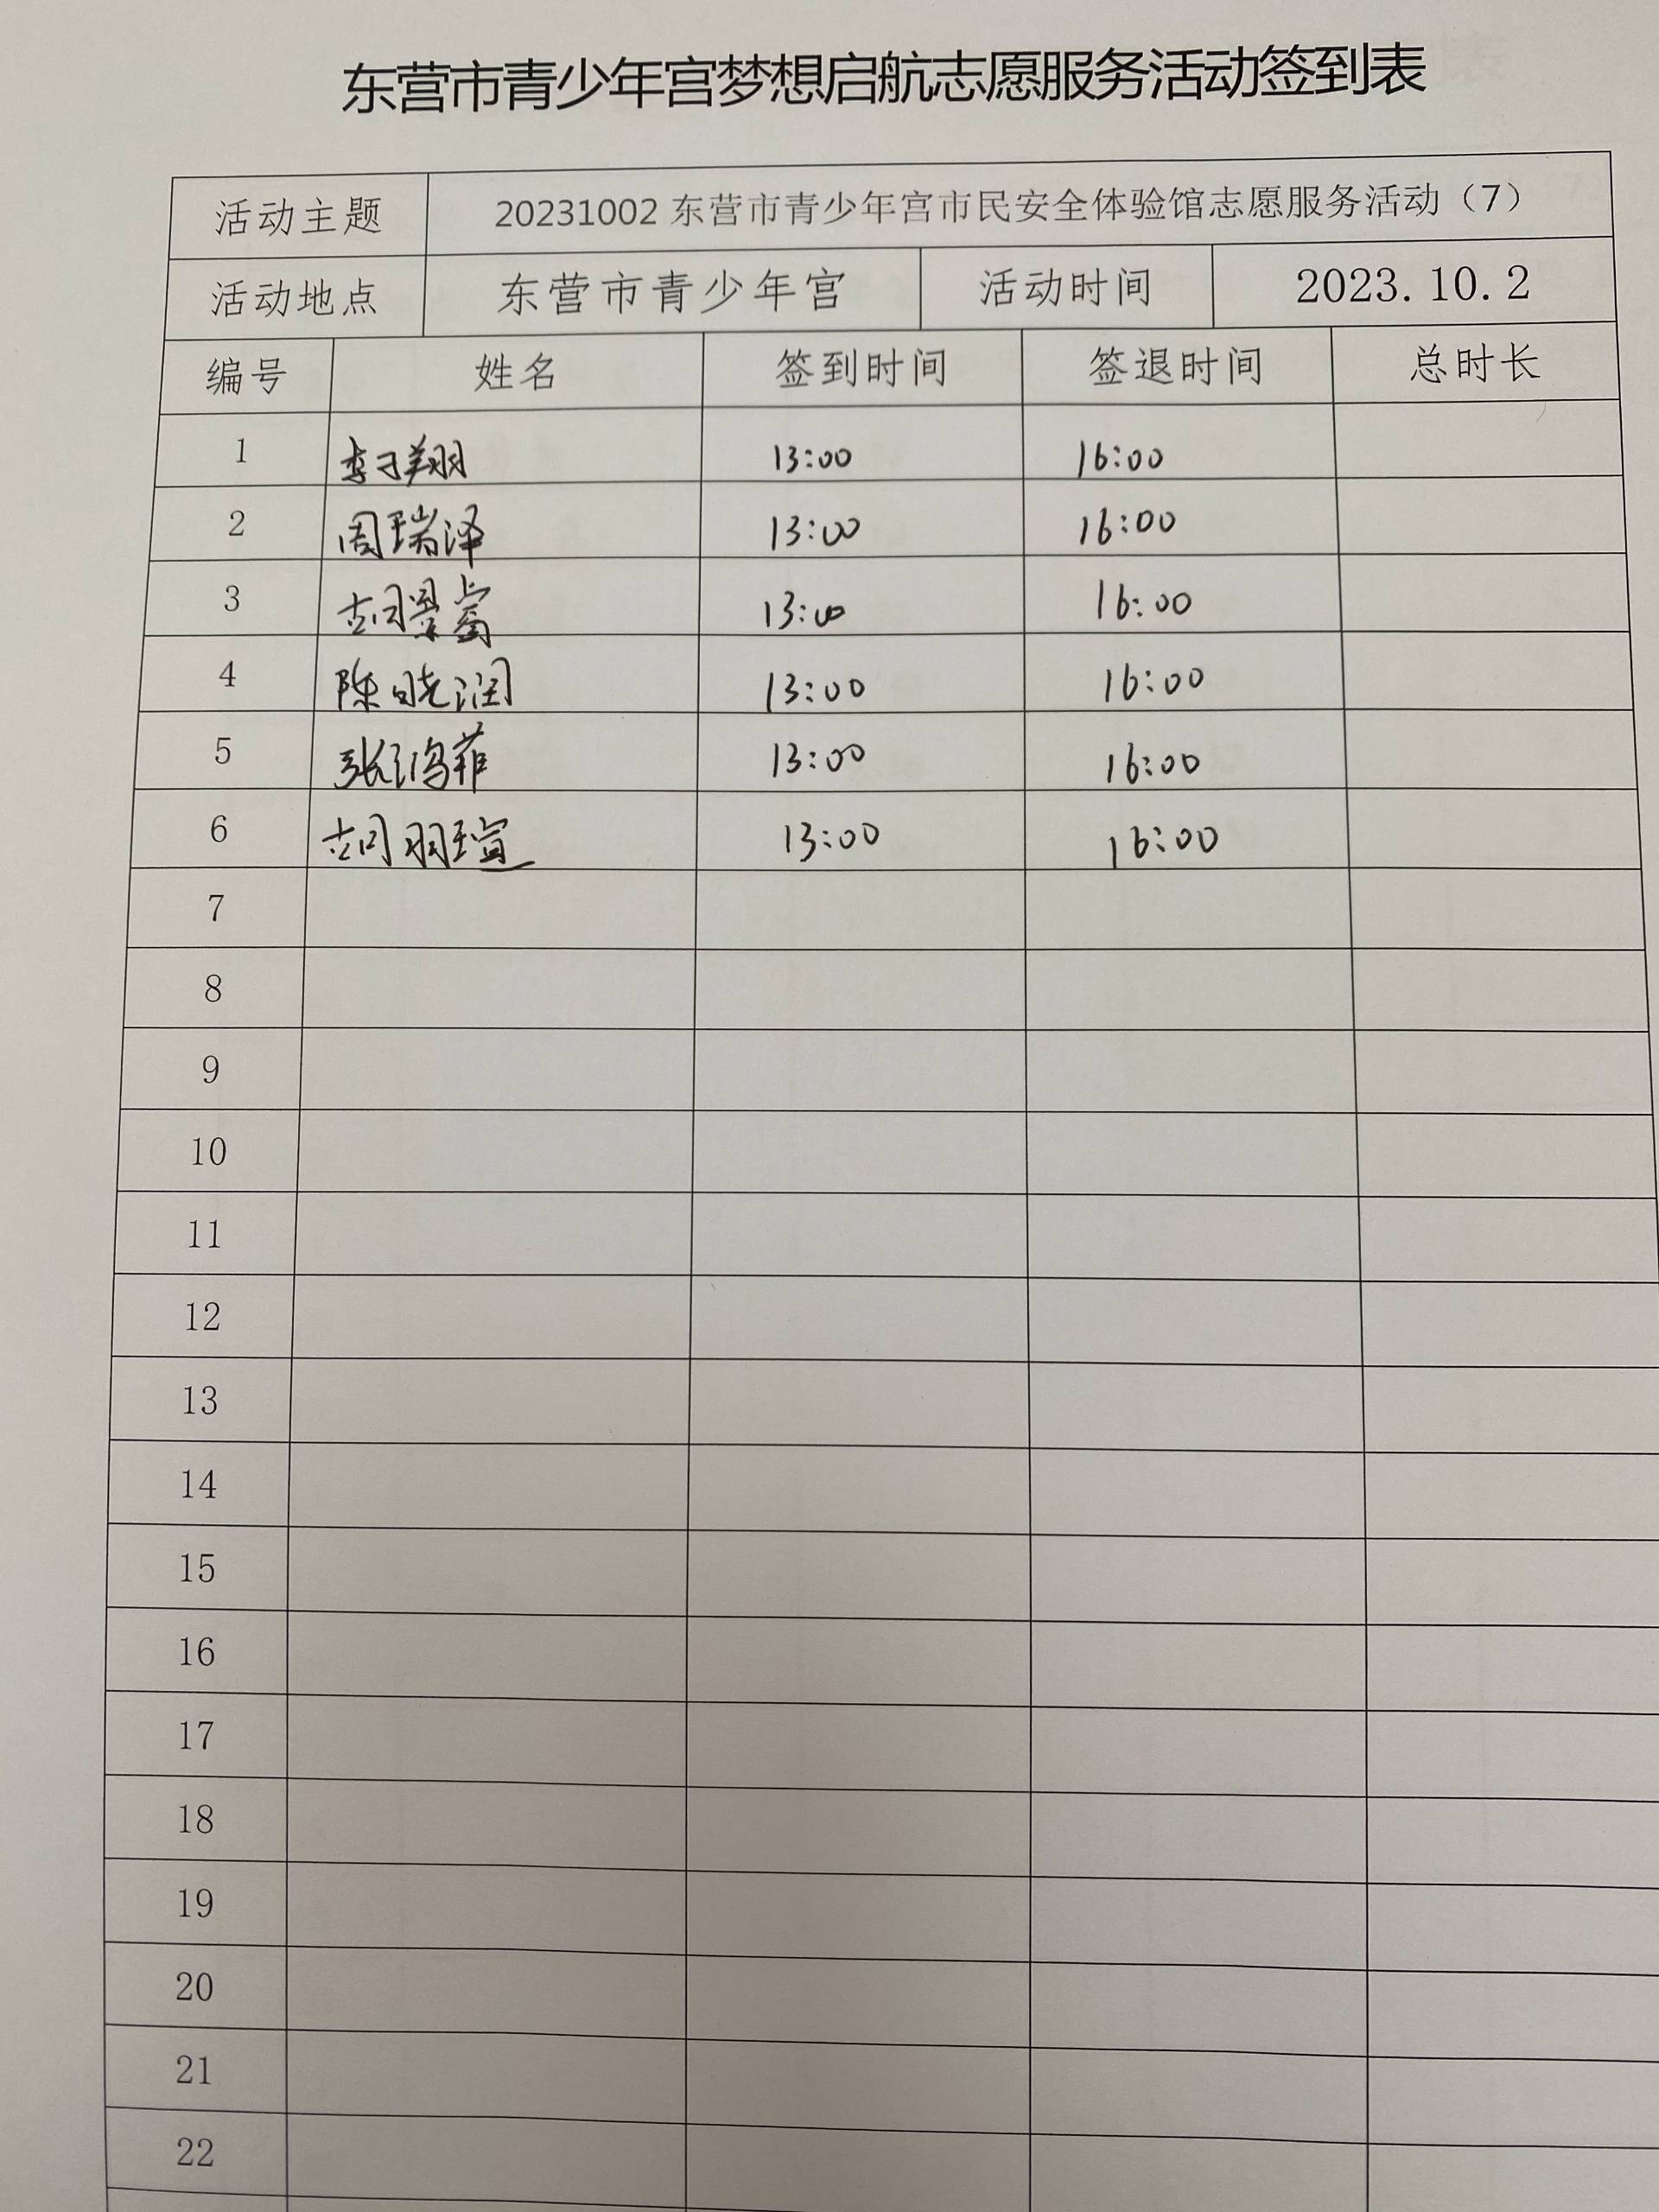 东营市青少年宫梦想启航志愿服务活动签到表
活动主题 20231002 东营市青少年宫市民安全体验馆志愿服务活动（7）
活动地点 东营市青少年宫 活动时间 2023.10.2
编号 姓名 签到时间 签退时间 总时长
1 李子翔 13:00 16:00
2 周瑞泽 13:00 16:00
3 13:00 16:00
4 陈晓润 13:00 16:00
5 张鸿菲 13:00 16:00
6 胡羽瑄 13:00 16:00
7
8
9
10
11
12
13
14
15
16
17
18
19
20
21
22